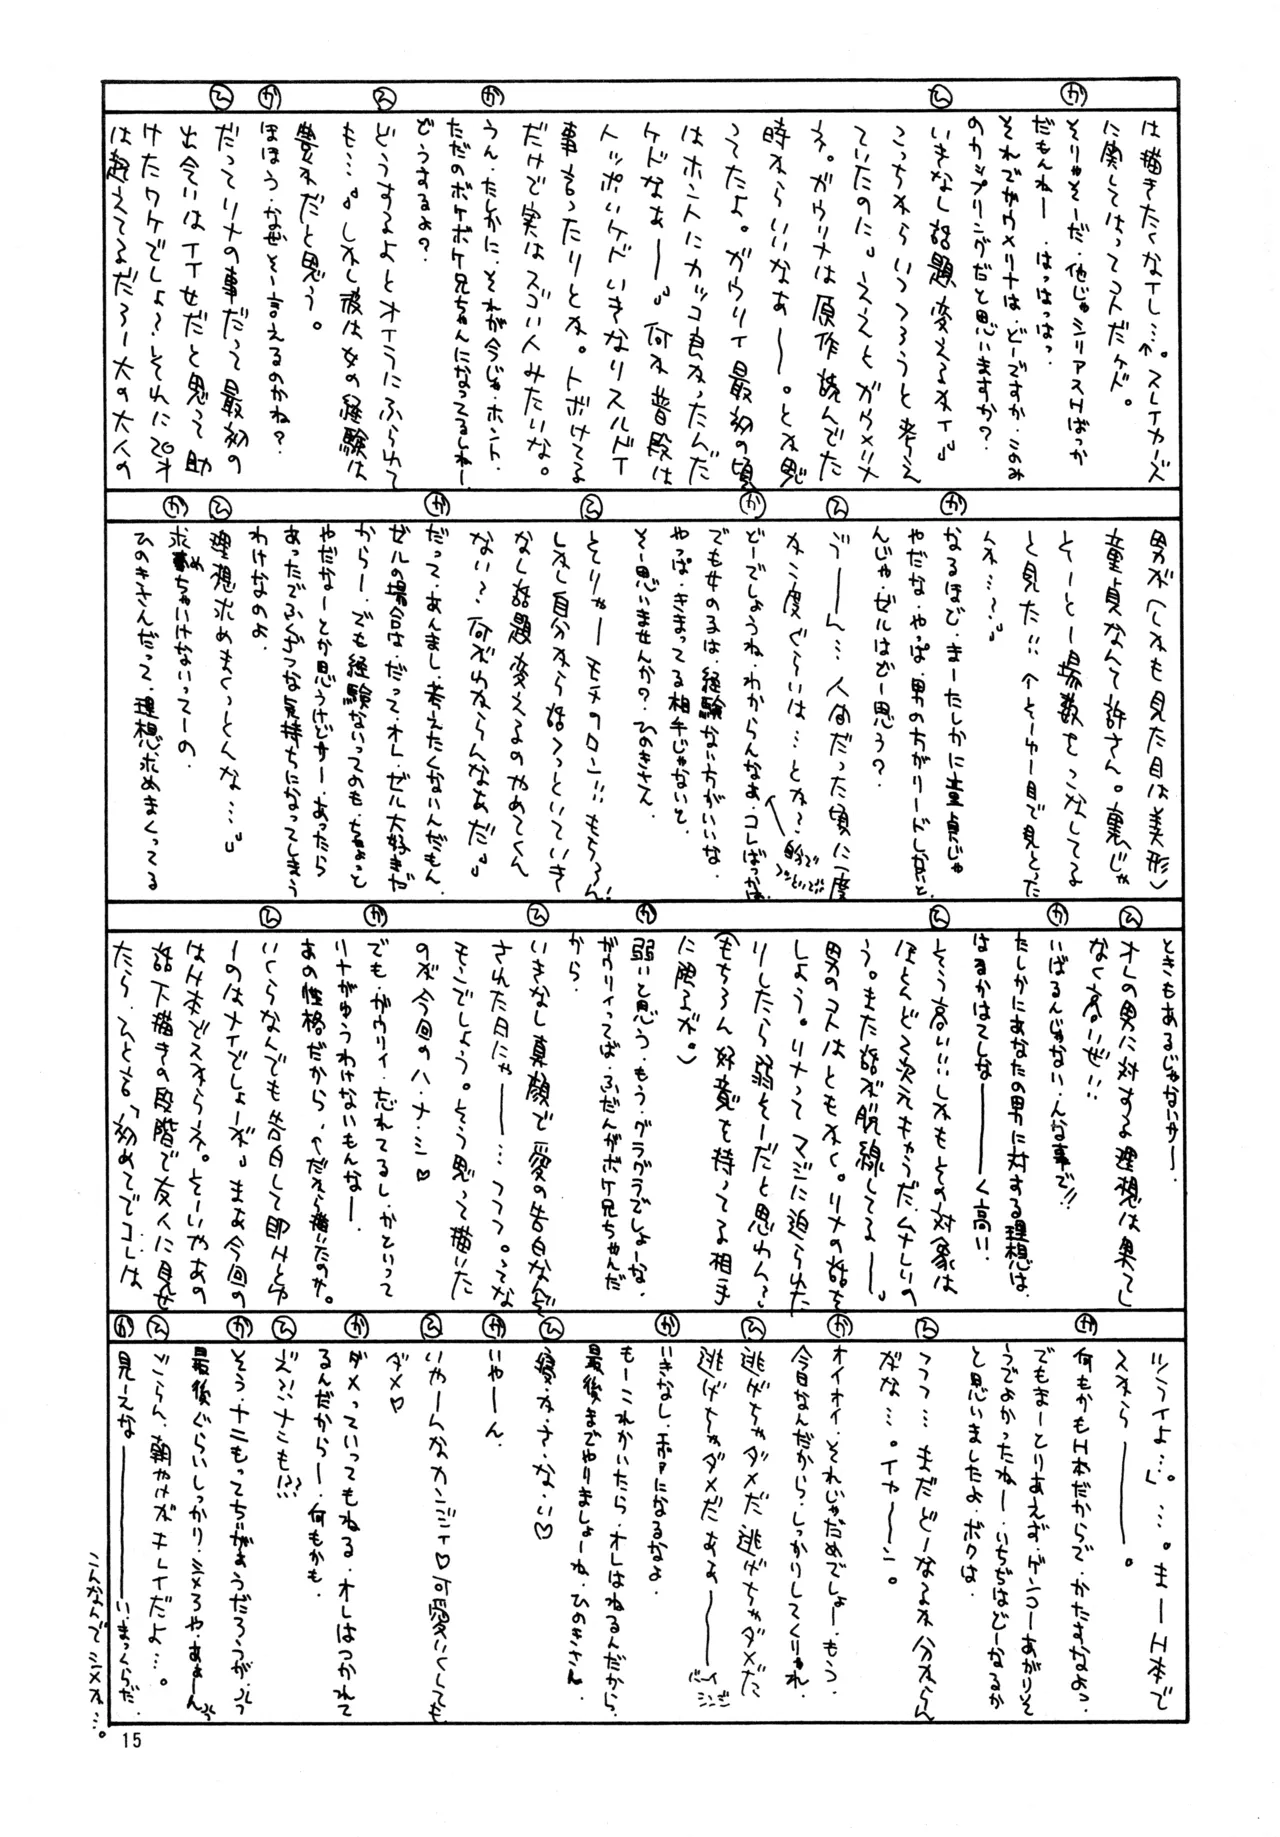 は描きたくなイし…。↑スレイヤーズ
に関してはってコトだケド。
か
そりゃそーだ、他じゃシリアスHばっか
だもんねー。はっはっはっ
それでガウ×リナは、どーですか、このみ
のカップリングだと思いますか？
ひ
いきなし話題変えるなイ。』
こっちからいっつろうと考え
ていたのに。ええとガウ×リナ
ネ。ガウリナは原作読んでた
時からいいなぁー。とか思
ってたよ。ガウリイ最初の頃
はホントにカッコ良かったんだ
ケドなぁー。』何か普段は
トッポいケドいきなりスルドイ
事言ったりとか。トボけてる
だけで実はスゴい人みたいな。
か
うん、たしかに、それが今じゃ、ホント、
ただのボケボケ兄ちゃんになってるしねー。
どうするよ？
ひ
どうするよとオイラにふられて
も…。』しかし彼は女の経験は
豊かだと思う。
か
ほほう、なぜそー言えるのかね？
ひ
だってリナの事だって最初の
出会いはイイ女だと思って助
けたワケでしょ？それに20才
は超えてるだろー大の大人の
男が（しかも見た目は美形）
童貞なんて許さん。裏じゃ
そーとー場数をこなしてる
と見た！！↑そーゆー目で見とった
んか…？』
か
なるほど、まーたしかに童貞じゃ
やだな、やっぱ、男の方がリードしないと、
んじゃ、ゼルはどー思う？
ひ
うーーん…人間だった頃に一度
か二度ぐらいは…とか？
か
どーでしょうね、わからんなぁ、コレばっかは、
でも女のるは、経験ない方がいいな、
やっぱ、きまってる相手じゃないと、
そー思いませんか？ひのきさん
ひ
そりゃーモチのロン！！もろろん！
しかし自分から話ろっといていき
なし話題変えるのやめてくん
ない？何がわならんなぁだ。』
か
だって、あんまし、考えたくないんだもん、
ゼルの場合は、だって、オレ、ゼル大好きだ
からー、でも経験ないってのも、ちょっと
やだなーとか思うけどサー、あったら
あったでふくざつな気持ちになってしまう
わけなのよ
ひ
理想求めまくっとんな…。』
か
求めちゃいけないってーの、
ひのきさんだって、理想求めまくってる
ときもあるじゃないサー、
ひ
オレの男に対する理想は果てし
なく高いぜ！！
か
いばるんじゃない、んな事で!!
たしかにあなたの男に対する理想は、
はるかはてしなーーーく高い！
ひ
そう高い！！しかもその対象は
ほとんど2次元キャラだ、ムナしいの
う。また話が脱線してるー。』
男のコトはともかく。リナの話を
しよう。リナってマジに迫られた
りしたら弱そーだと思わん？
（もちろん好意を持ってる相手
に限るが。）
か
弱いと思う、もう、グラグラでしょーな、
ガウリイってば、ふだんがボケ兄ちゃんだ
から、
ひ
いきなし真顔で愛の告白なんぞ
された日にゃー…フフフ。ってな
モンでしょう。そう思って描いた
のが今回のハ・ナ・シ♡
か
でも、ガウリイ、だれてるし、かといって
リナがゆうわけないもんなー、
あの性格だから、↑だれら描いたのか。
ひ
いくらなんでも告白して即Hとゆ
ーのはナイでしょーが。』まあ今回の
はH本で入れらネ。そーいやあの
話下描きの段階で友人に見せ
たら、ひとこと「初めてでコレは
ツライよ…。」…。まーH本で
スからーー。
か
何もかもH本だからで、かたすなよっ
でもまーとりあえず、ゲンコーあがりそ
うでよかったねー、いちぢはどーなるか
と思いましたよ、ボクは、
ひ
フフフ…まだどーなるか分からん
がな…。イヤーン。
か
オイオイ、それじゃだめでしょー、もう、
今日なんだから、しっかりしてくりゃれ、
ひ
逃げちゃダメだ逃げちゃダメだ
逃げちゃダメだぁぁーー
か
いきなし、エヴァになるなよ、
もーこれかいたら、オレはねるんだから、
最後までやりましょーね、ひのきさん、
ひ
寝・か・さ・な・い♡
か
いやーん、
ひ
いやーんなカンジィ♡可愛いくしても
ダメ♡
か
ダメっていってもねる、オレはつかれて
るんだからー、何もかも、
ひ
え！！ナニも!?
か
そう、ナニもってちがぁうだろうが、
最後ぐらいしっかり、シメろや、あぁーん
ひ
ごらん、朝やけがキレイだよ…。
か
見ーえなーーーーい、まっくらだ、
こんなんでシメか…。
15